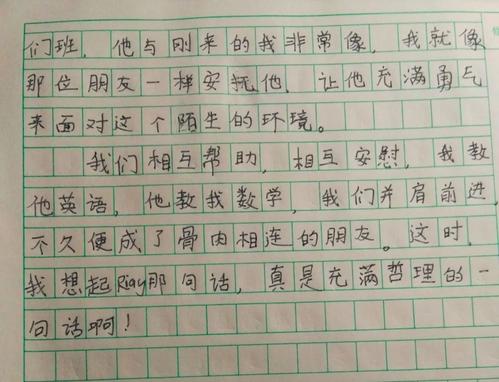 们班，他与刚来的我非常像，我就像
那位朋友一样安抚他，让他充满勇气
来面对这个陌生的环境。
我们相互帮助，相互安慰，我教
他英语，他教我数学，我们并肩前进，
不久便成了骨肉相连的朋友。这时，
我想起Riay那句话，真是充满哲理的一
句话啊！